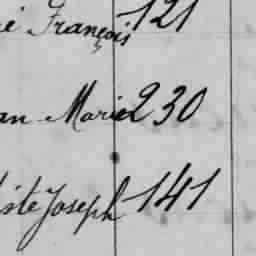 é François 121
an Marie 230
iste Joseph 141